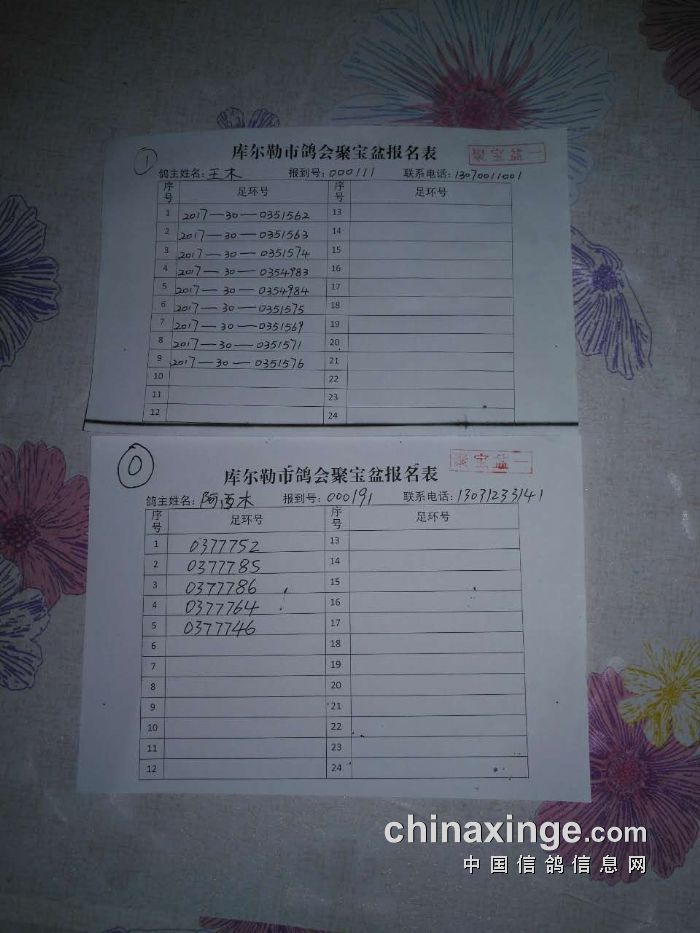 ① 库尔勒市鸽会聚宝盆报名表 聚宝盆一
鸽主姓名：王木 报到号：000111 联系电话：13070011001
序号 足环号 序号 足环号
1 2017—30—0351562 13
2 2017—30—0351563 14
3 2017—30—0351574 15
4 2017—30—0354983 16
5 2017—30—0354984 17
6 2017—30—0351575 18
7 2017—30—0351569 19
8 2017—30—0351571 20
9 2017—30—0351576 21
10 22
11 23
12 24
0 库尔勒市鸽会聚宝盆报名表 聚宝盆一
鸽主姓名：阿西木 报到号：000191 联系电话：13031233141
序号 足环号 序号 足环号
1 0377752 13
2 0377785 14
3 0377786 15
4 0377764 16
5 0377746 17
6 18
7 19
8 20
9 21
10 22
11 23
12 24
chinaxinge.com
中国信鸽信息网